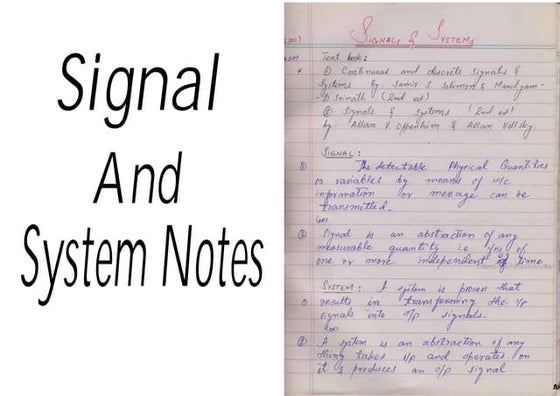 Signal
And
System Notes
SIGNALS & SYSTEMS
Text book:
① Continuous and discrete signals &
Systems by: Samir S Soliman & Mandyam-
-D Srinath (2nd ed)
② Signals & Systems (2nd ed)
by: Allan V. Oppenhim & Allan Willsky.
SIGNAL:
① The detectable Physical Quantities
or variables by means of w/c
information or message can be
transmitted.
(or)
② Signal is an abstraction of any
measurable quantity i.e of
one or more independent of time.
SYSTEM: A system is process that
① results in transforming the i/p
signals into o/p signals.
(or)
② A system is an abstraction of any
thing takes i/p and operates on
it & produces an o/p signal.